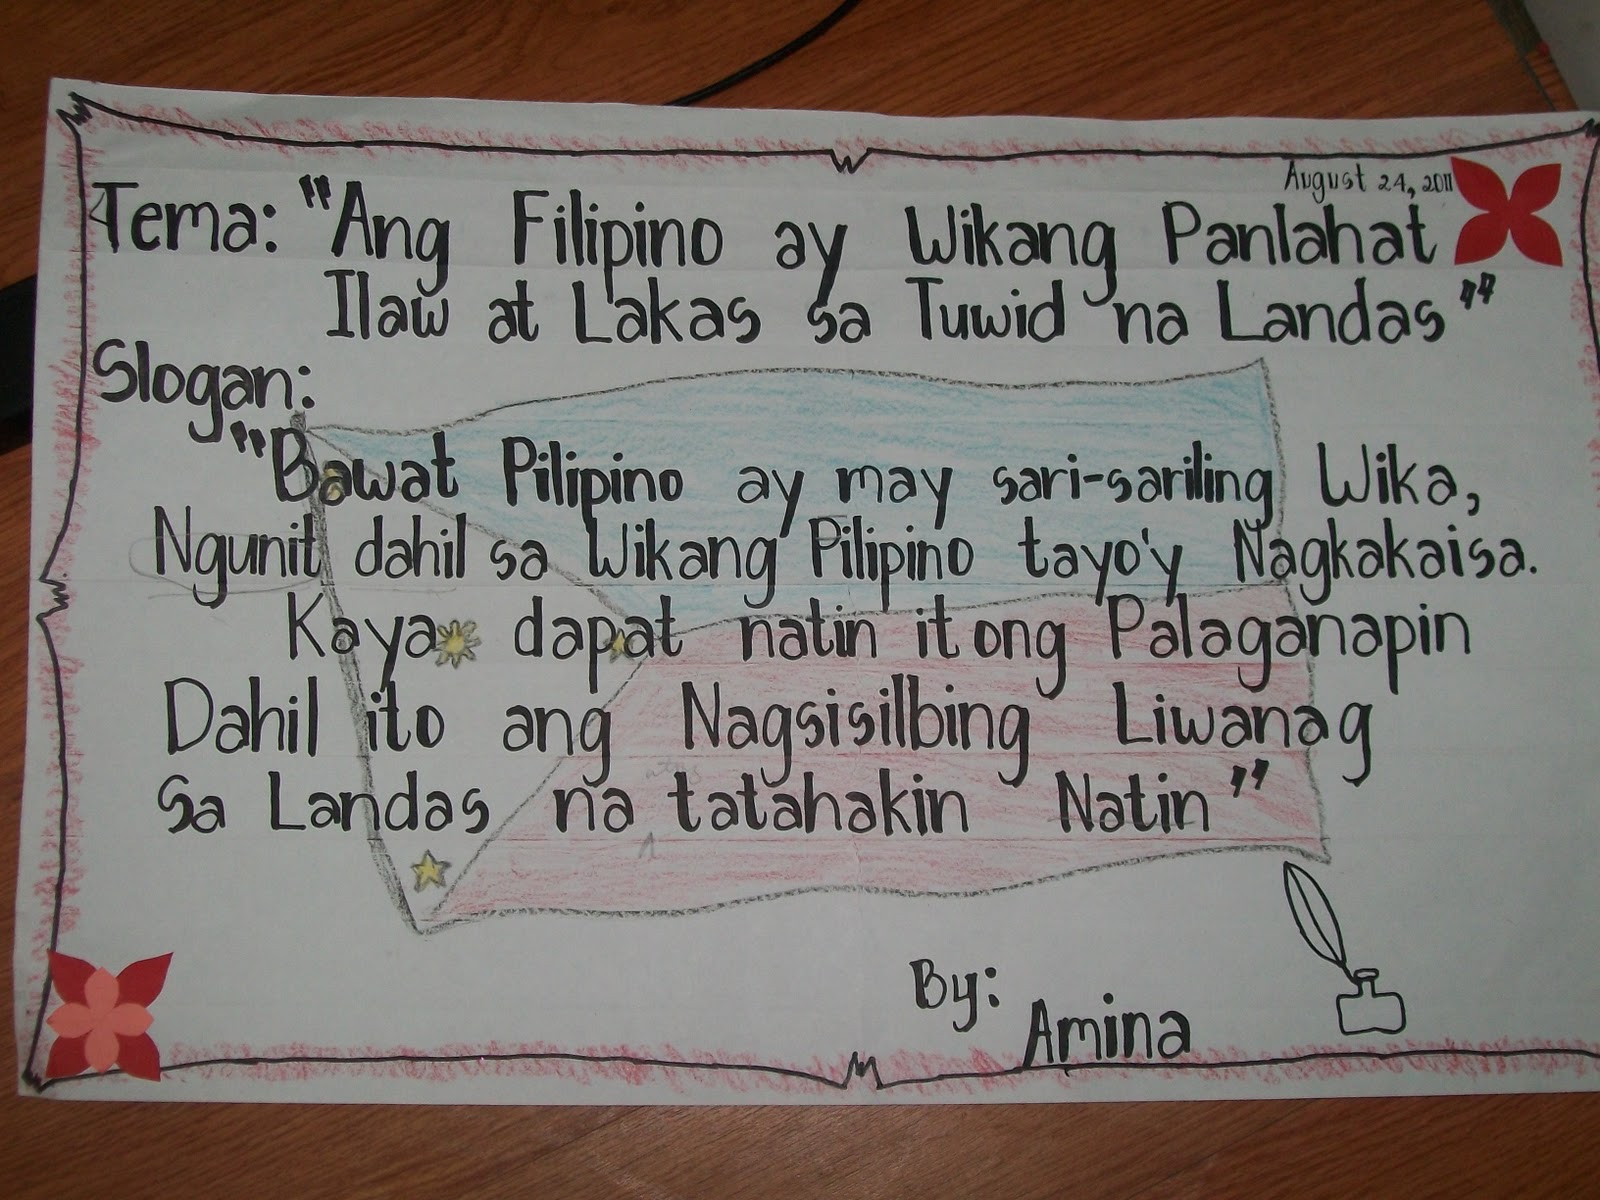 August 24, 2011
Tema: "Ang Filipino ay Wikang Panlahat
Ilaw at Lakas sa Tuwid na Landas"
Slogan:
"Bawat Pilipino ay may sari-sariling Wika,
Ngunit dahil sa Wikang Pilipino tayo'y Nagkakaisa.
Kaya dapat natin itong Palaganapin
Dahil ito ang Nagsisilbing Liwanag
sa Landas na tatahakin Natin"
By:
Amina